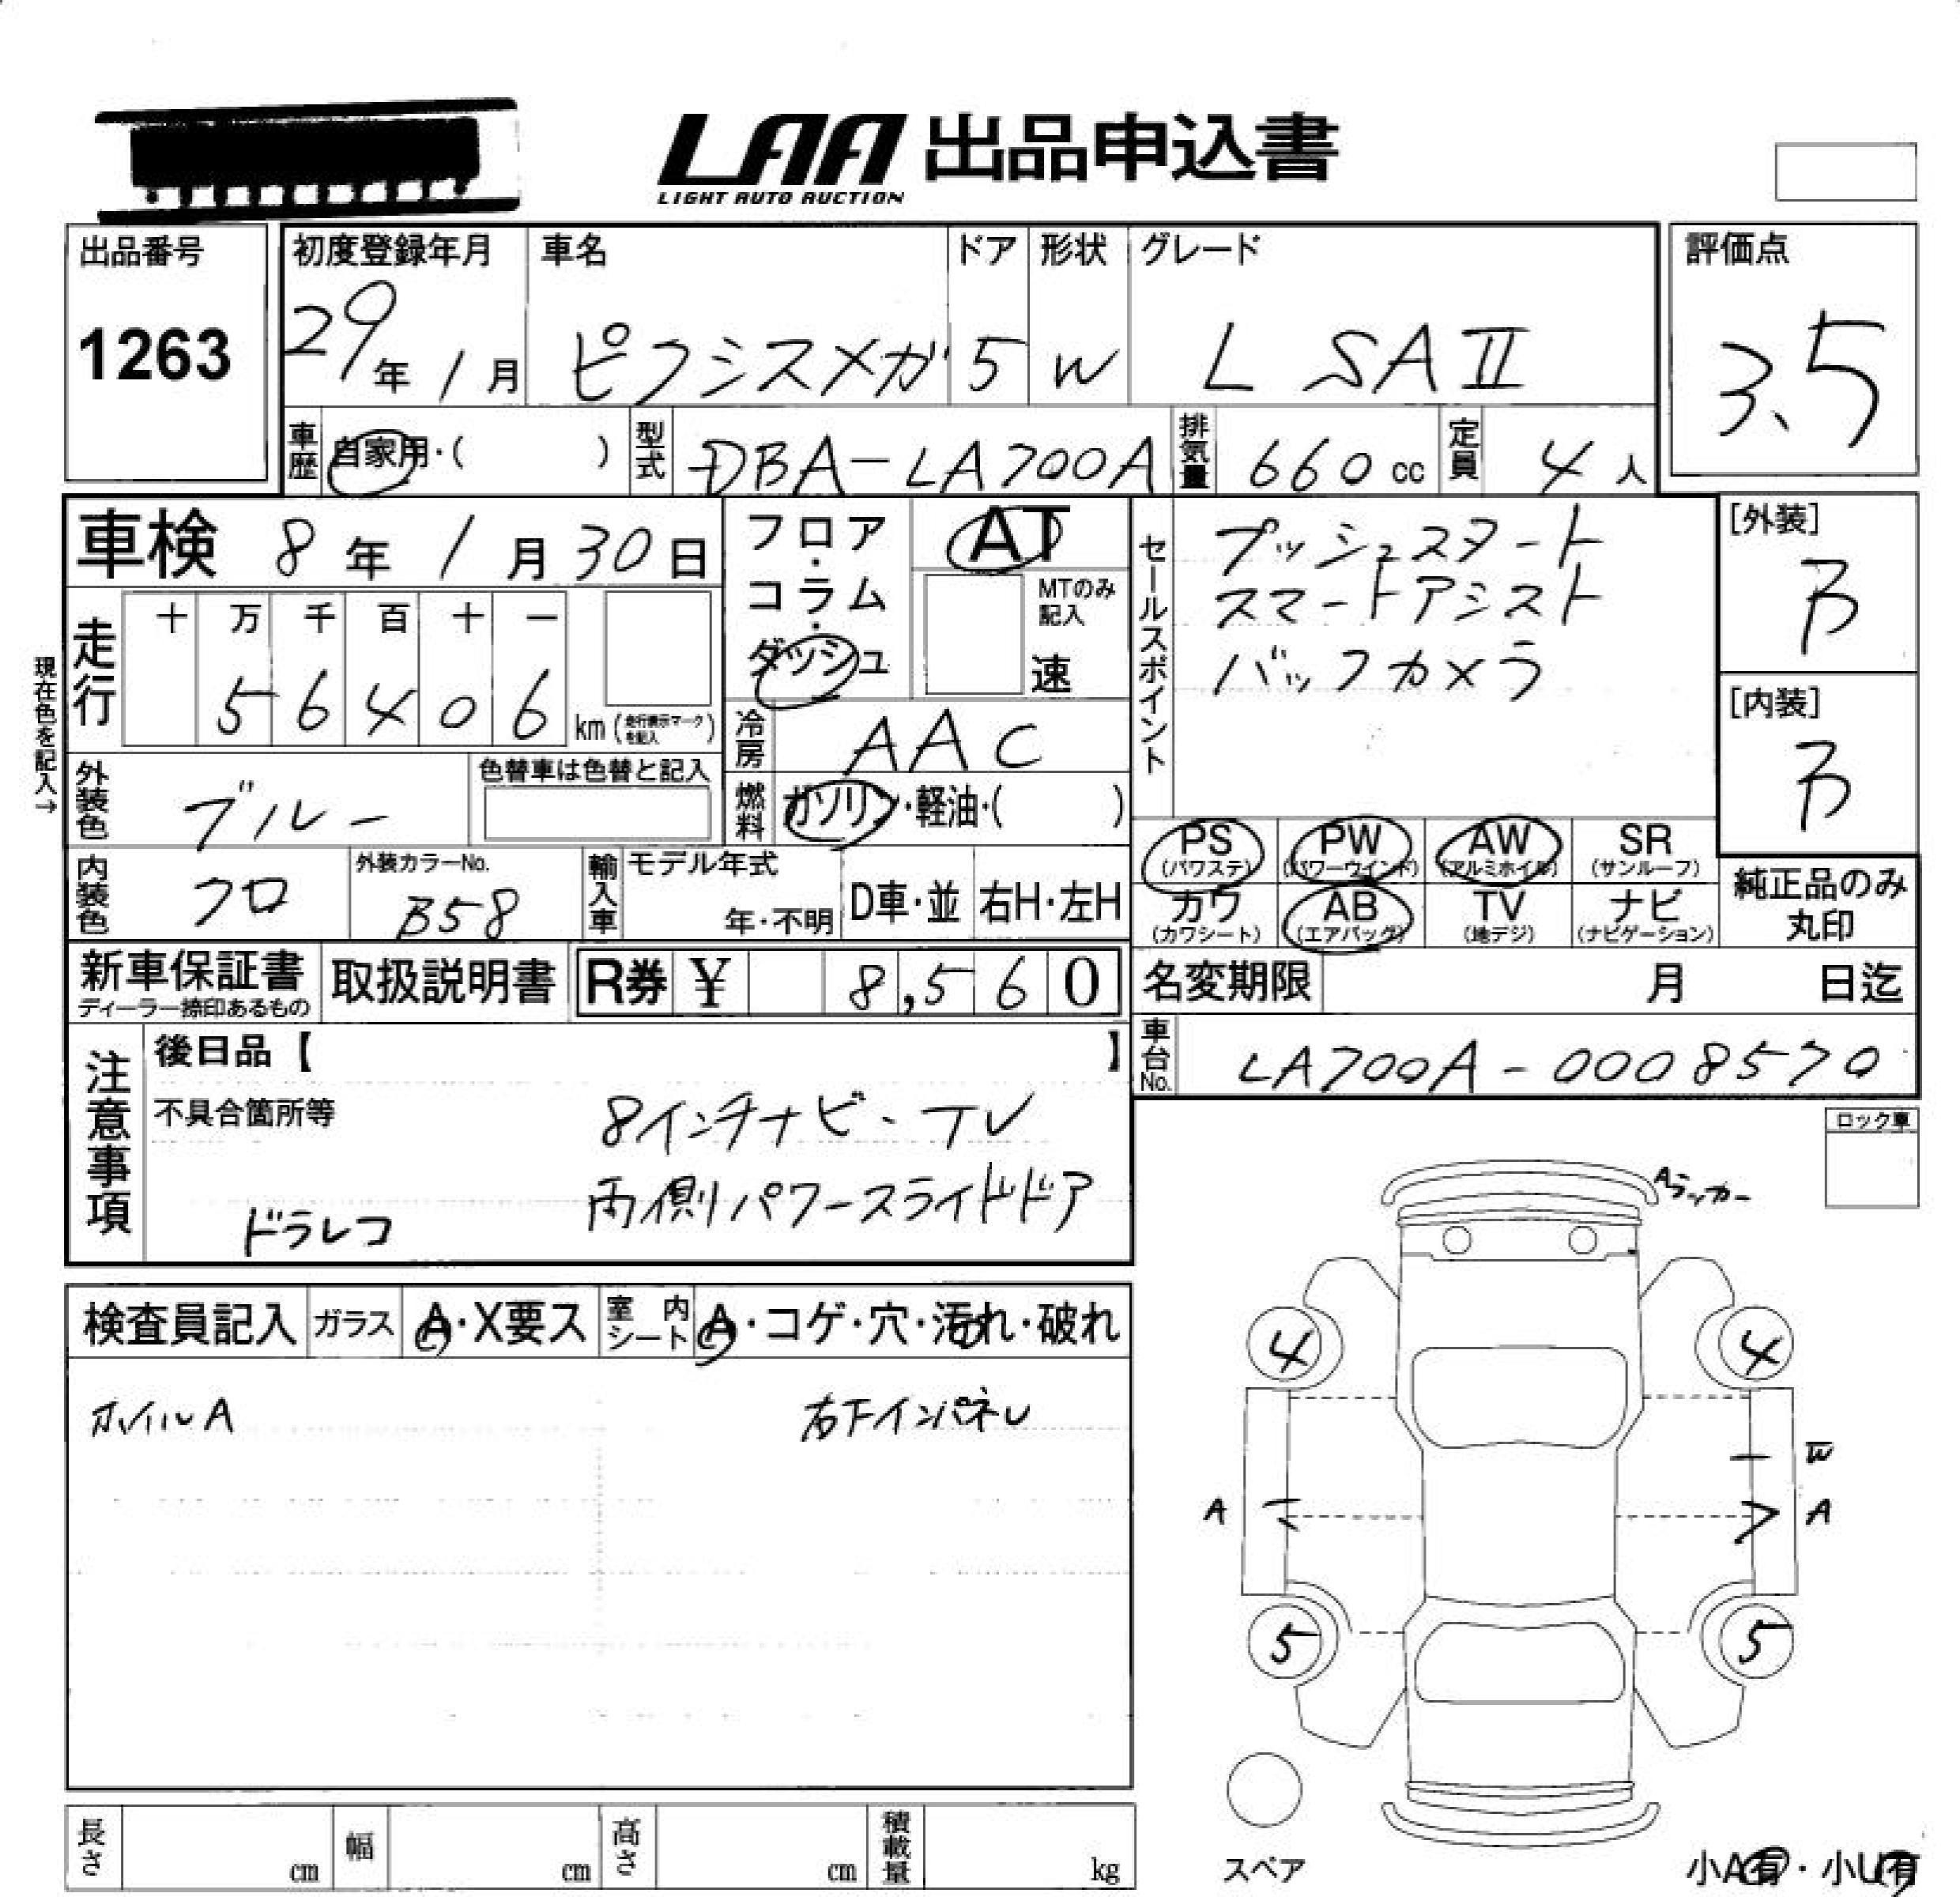 LAA 出品申込書
LIGHT AUTO AUCTION
出品番号
1263
初度登録年月
29年 1月
車名
ピクシスメガ
ドア
5
形状
W
グレード
L SAⅡ
評価点
3.5
車歴 自家用・( )
型式 DBA-LA700A
排気量 660cc
定員 4人
車検 8年 1月 30日
フロア・コラム・ダッシュ
AT
MTのみ記入
速
セールスポイント
プッシュスタート
スマートアシスト
バックカメラ
[外装]
B
[内装]
B
現在色を記入→
走行
十 万 千 百 十 一
5 6 4 0 6 km (走行表示マークを記入)
冷房 AAC
外装色 ブルー
色替車は色替と記入
燃料 ガソリン・軽油・( )
PS (パワステ) PW (パワーウインド) AW (アルミホイル) SR (サンルーフ)
カワ (カワシート) AB (エアバッグ) TV (地デジ) ナビ (ナビゲーション)
純正品のみ丸印
内装色 クロ
外装カラーNo.
B58
輸入車 モデル年式
年・不明
D車・並 右H・左H
新車保証書
ディーラー捺印あるもの
取扱説明書
R券 ¥ 8,560
名変期限 月 日迄
車台No. LA700A-0008570
注意事項
後日品【 】
不具合箇所等
8インチナビ-TV
両側パワースライドドア
ドラレコ
ロック車
検査員記入 ガラス A・X要ス 室内シート A・コゲ・穴・汚れ・破れ
ホイルA
右下インパネU
Aラッカー
4 4
W
A A
5 5
スペア
小A有・小U有
長さ cm 幅 cm 高さ cm 積載量 kg